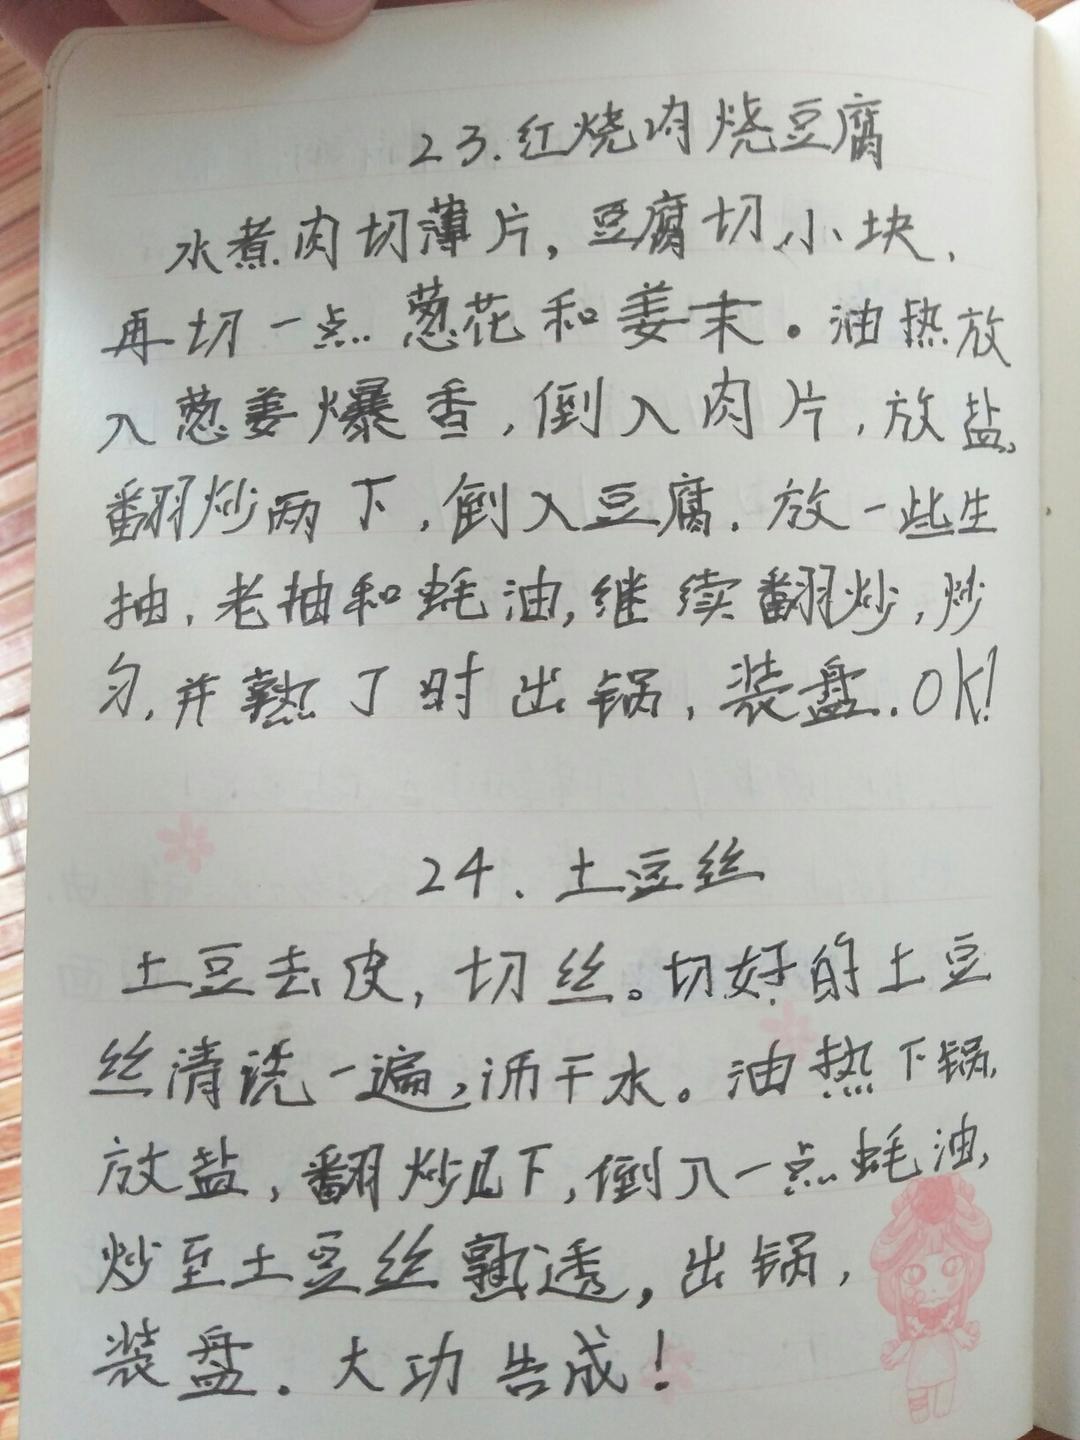 23.红烧肉烧豆腐
水煮肉切薄片,豆腐切小块,
再切一点葱花和姜末。油热放
入葱姜爆香,倒入肉片,放盐,
翻炒两下,倒入豆腐.放一些生
抽,老抽和蚝油,继续翻炒,炒
匀,并熟了时出锅,装盘.OK!
24.土豆丝
土豆去皮,切丝。切好的土豆
丝清洗一遍,沥干水。油热下锅,
放盐,翻炒几下,倒入一点蚝油,
炒至土豆丝熟透,出锅,
装盘.大功告成!